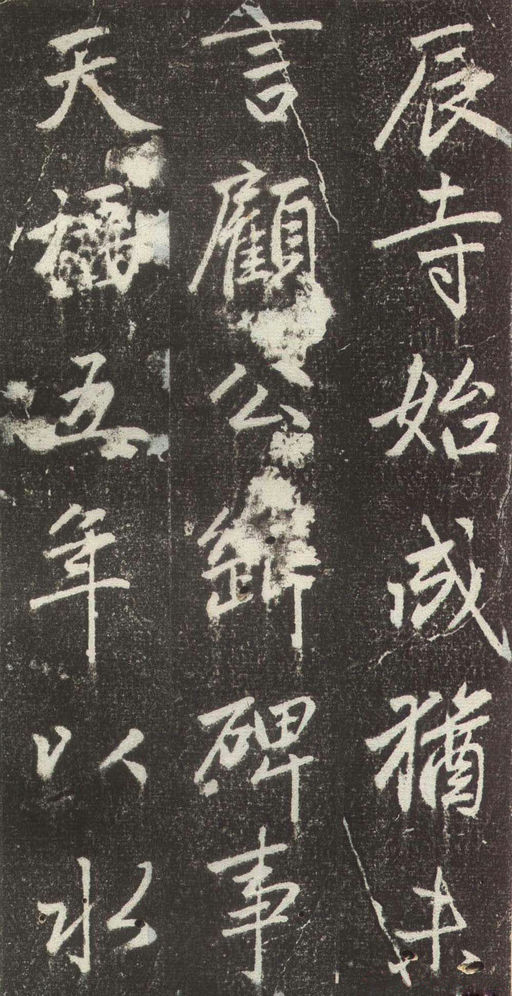 辰寺始成猶未
言顧公碑事
天福五年以水